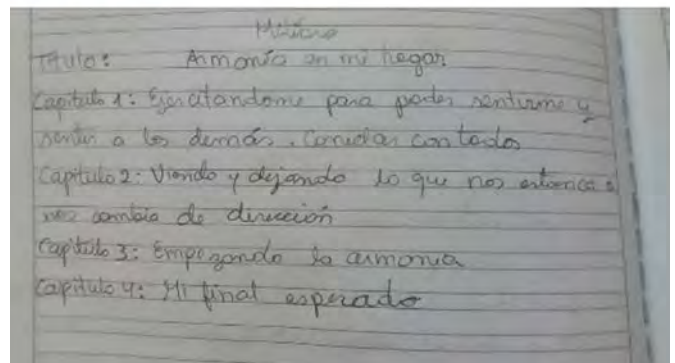 Título: Armonía en mi hogar
Capitulo 1: Ejercitandome para poder sentirme y
sentir a los demás. Conectar con todos
Capitulo 2: Viendo y dejando lo que nos estanca o
nos cambia de dirección
Capitulo 3: Empezando la armonia
Capitulo 4: Mi final esperado